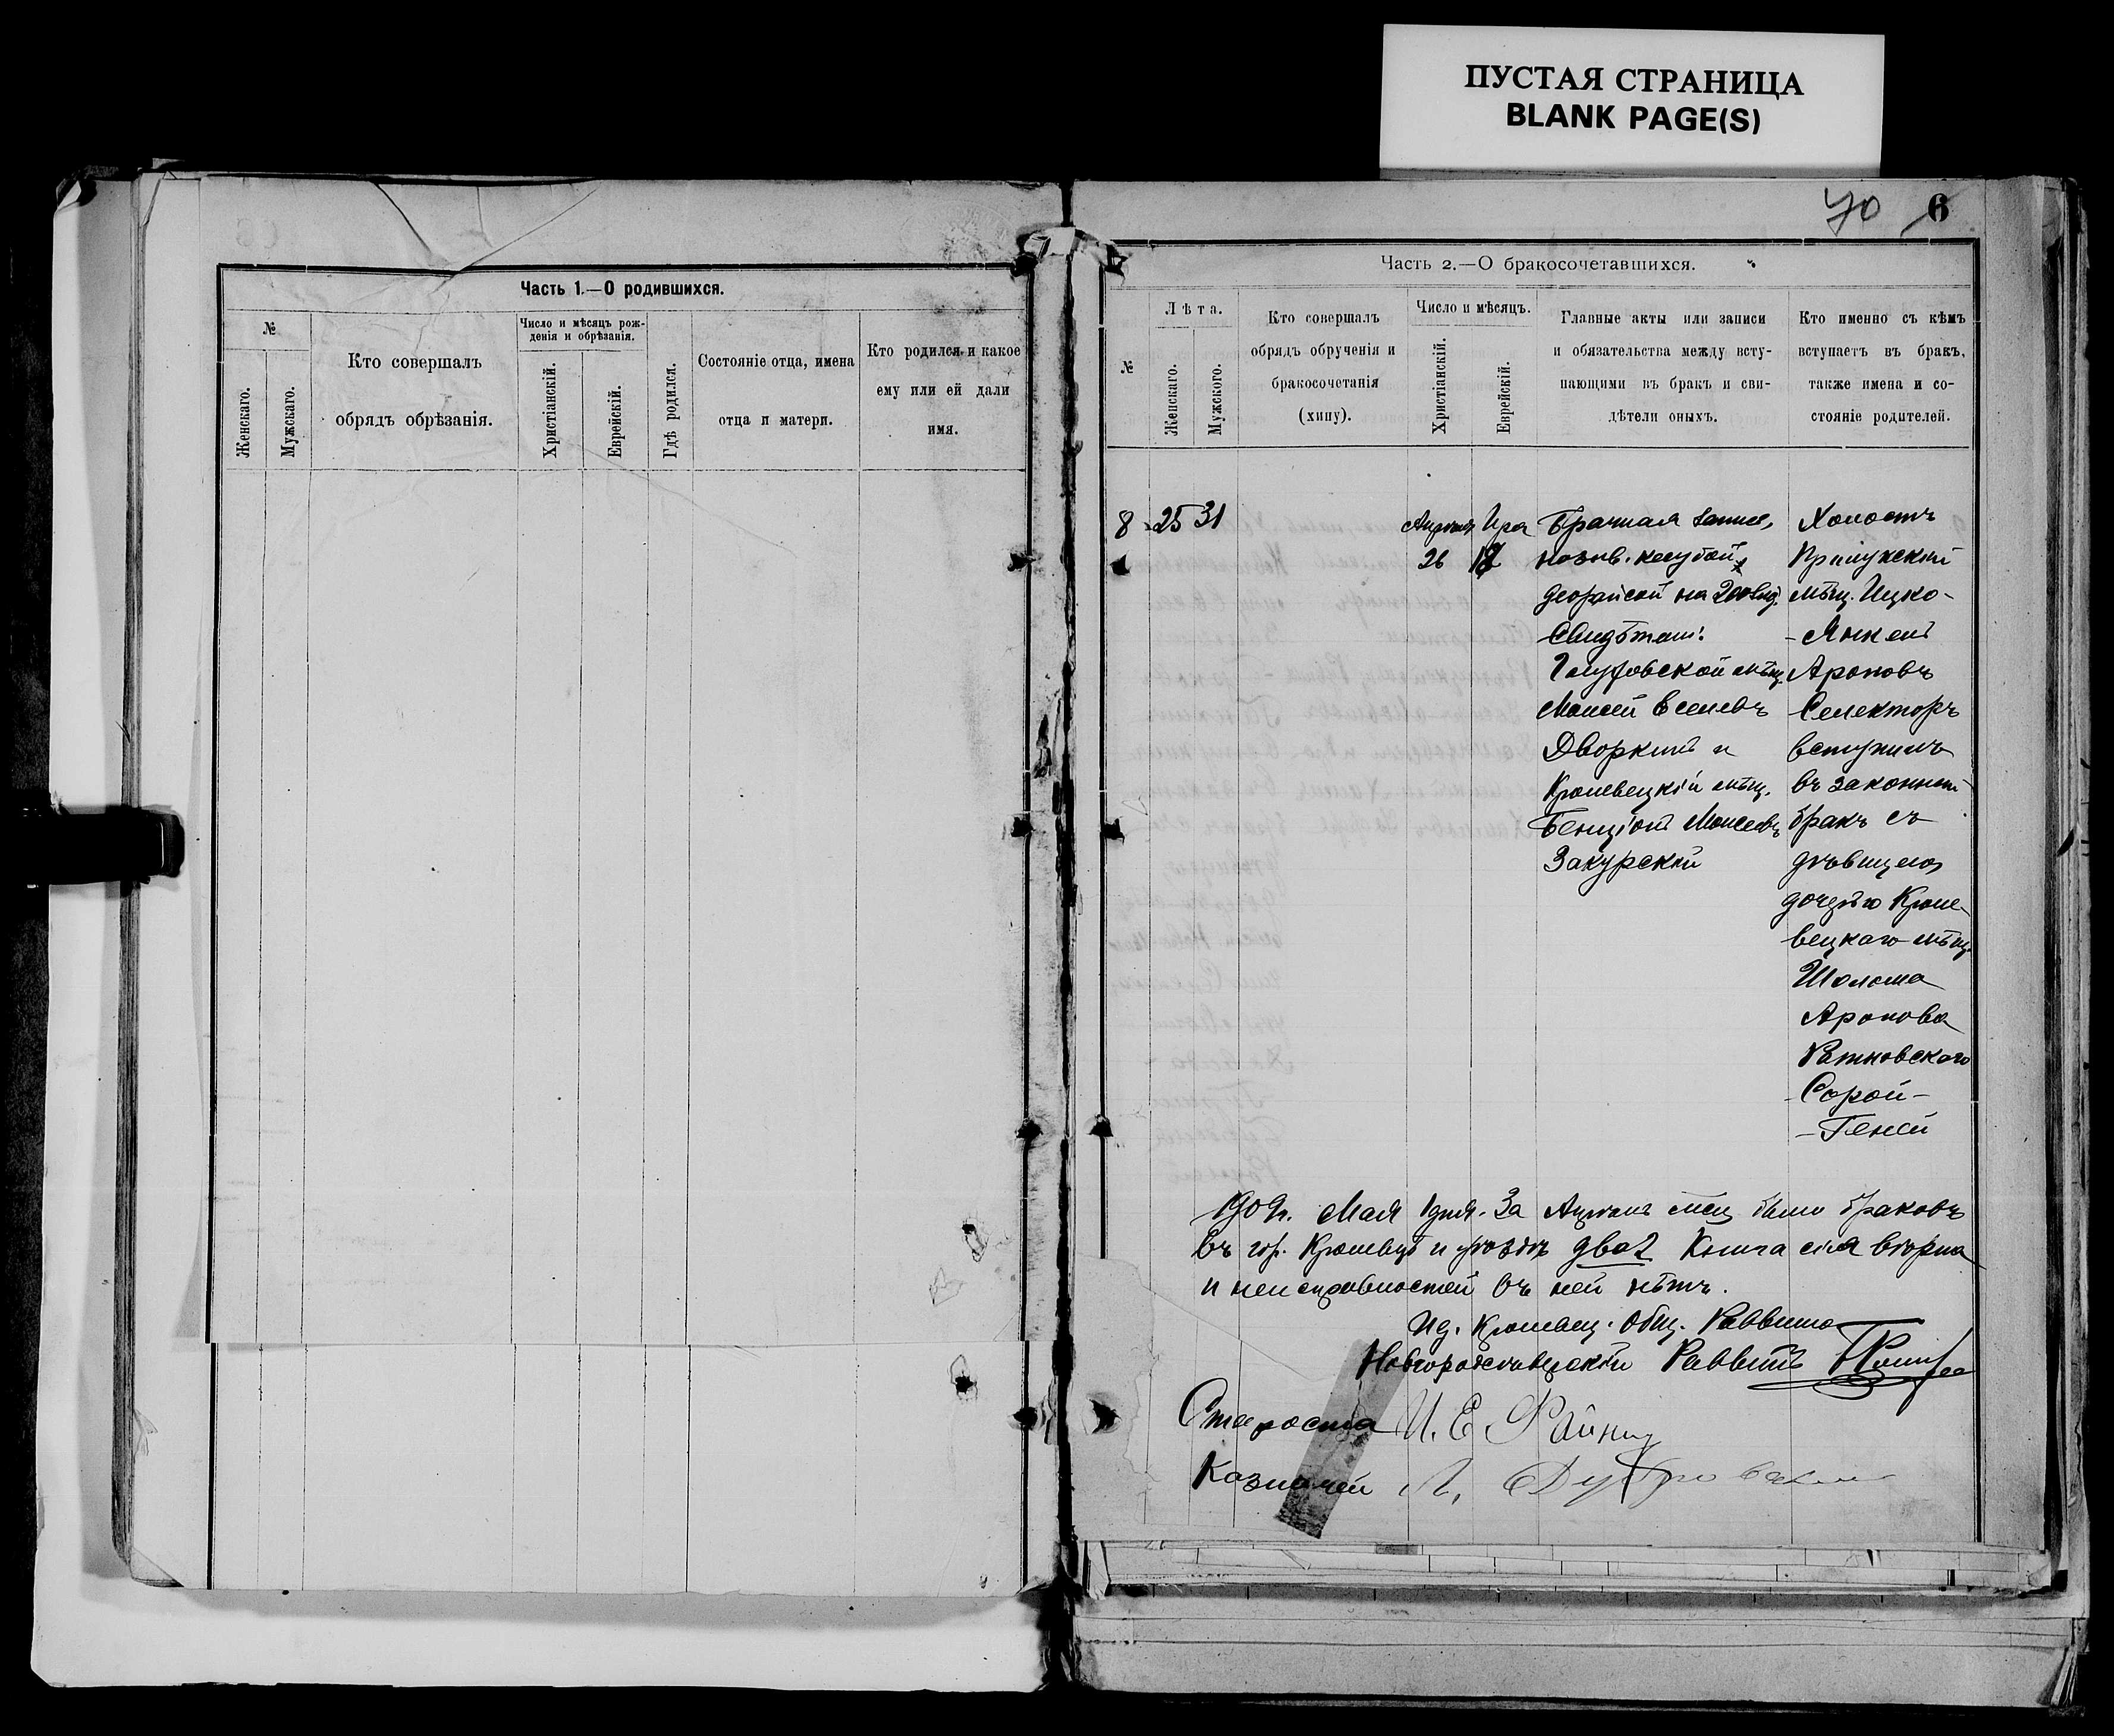 ПУСТАЯ СТРАНИЦА
BLANK PAGE(S)
Часть 1.—О родившихся.
№
Женскаго.
Мужскаго.
Кто совершалъ
обрядъ обрѣзанія.
Число и мѣсяцъ рож-
денія и обрѣзанія.
Христіанскій.
Еврейскій.
Гдѣ родился.
Состояніе отца, имена
отца и матери.
Кто родился и какое
ему или ей дали
имя.
70 6
Часть 2.—О бракосочетавшихся.
№
Лѣта.
Женскаго.
Мужскаго.
Кто совершалъ
обрядъ обрученія и
бракосочетанія
(хипу).
Число и мѣсяцъ.
Христіанскій.
Еврейскій.
Главные акты или записи
и обязательства между всту-
пающими въ бракъ и сви-
дѣтели оныхъ.
Кто именно съ кѣмъ
вступаетъ въ бракъ,
также имена и со-
стояніе родителей.
8 25 31
Апрѣля
26
Ира
Брачная запис,
назыв. кесубой,
на 200
Свидѣтели:
Глуховской мѣщ.
Моисей Евселевъ
Дворкинъ и
Кролевецкій мѣщ.
Бенціонъ Моисеевъ
Закурскій
Холостъ
Прилукскій
мѣщ. Ицко-
-Янкель
Ароновъ
Селекторъ
вступилъ
въ законный
бракъ съ
дѣвицею
дочерью Кроле-
вецкаго мѣщ.
Шолома
Аронова
Ратновскаго
Сорой-
-Геней
1909г. Мая 1 дня. За Апрѣль мсц было браковъ
въ гор. Кролевцѣ и уѣздѣ два 2 Книга сія вѣрна
и неисправностей въ ней нѣтъ.
Ид. Кролевец. Общ. Раввина
Новгородсѣверскій Раввинъ
Староста И. Е.
Казначей Л.